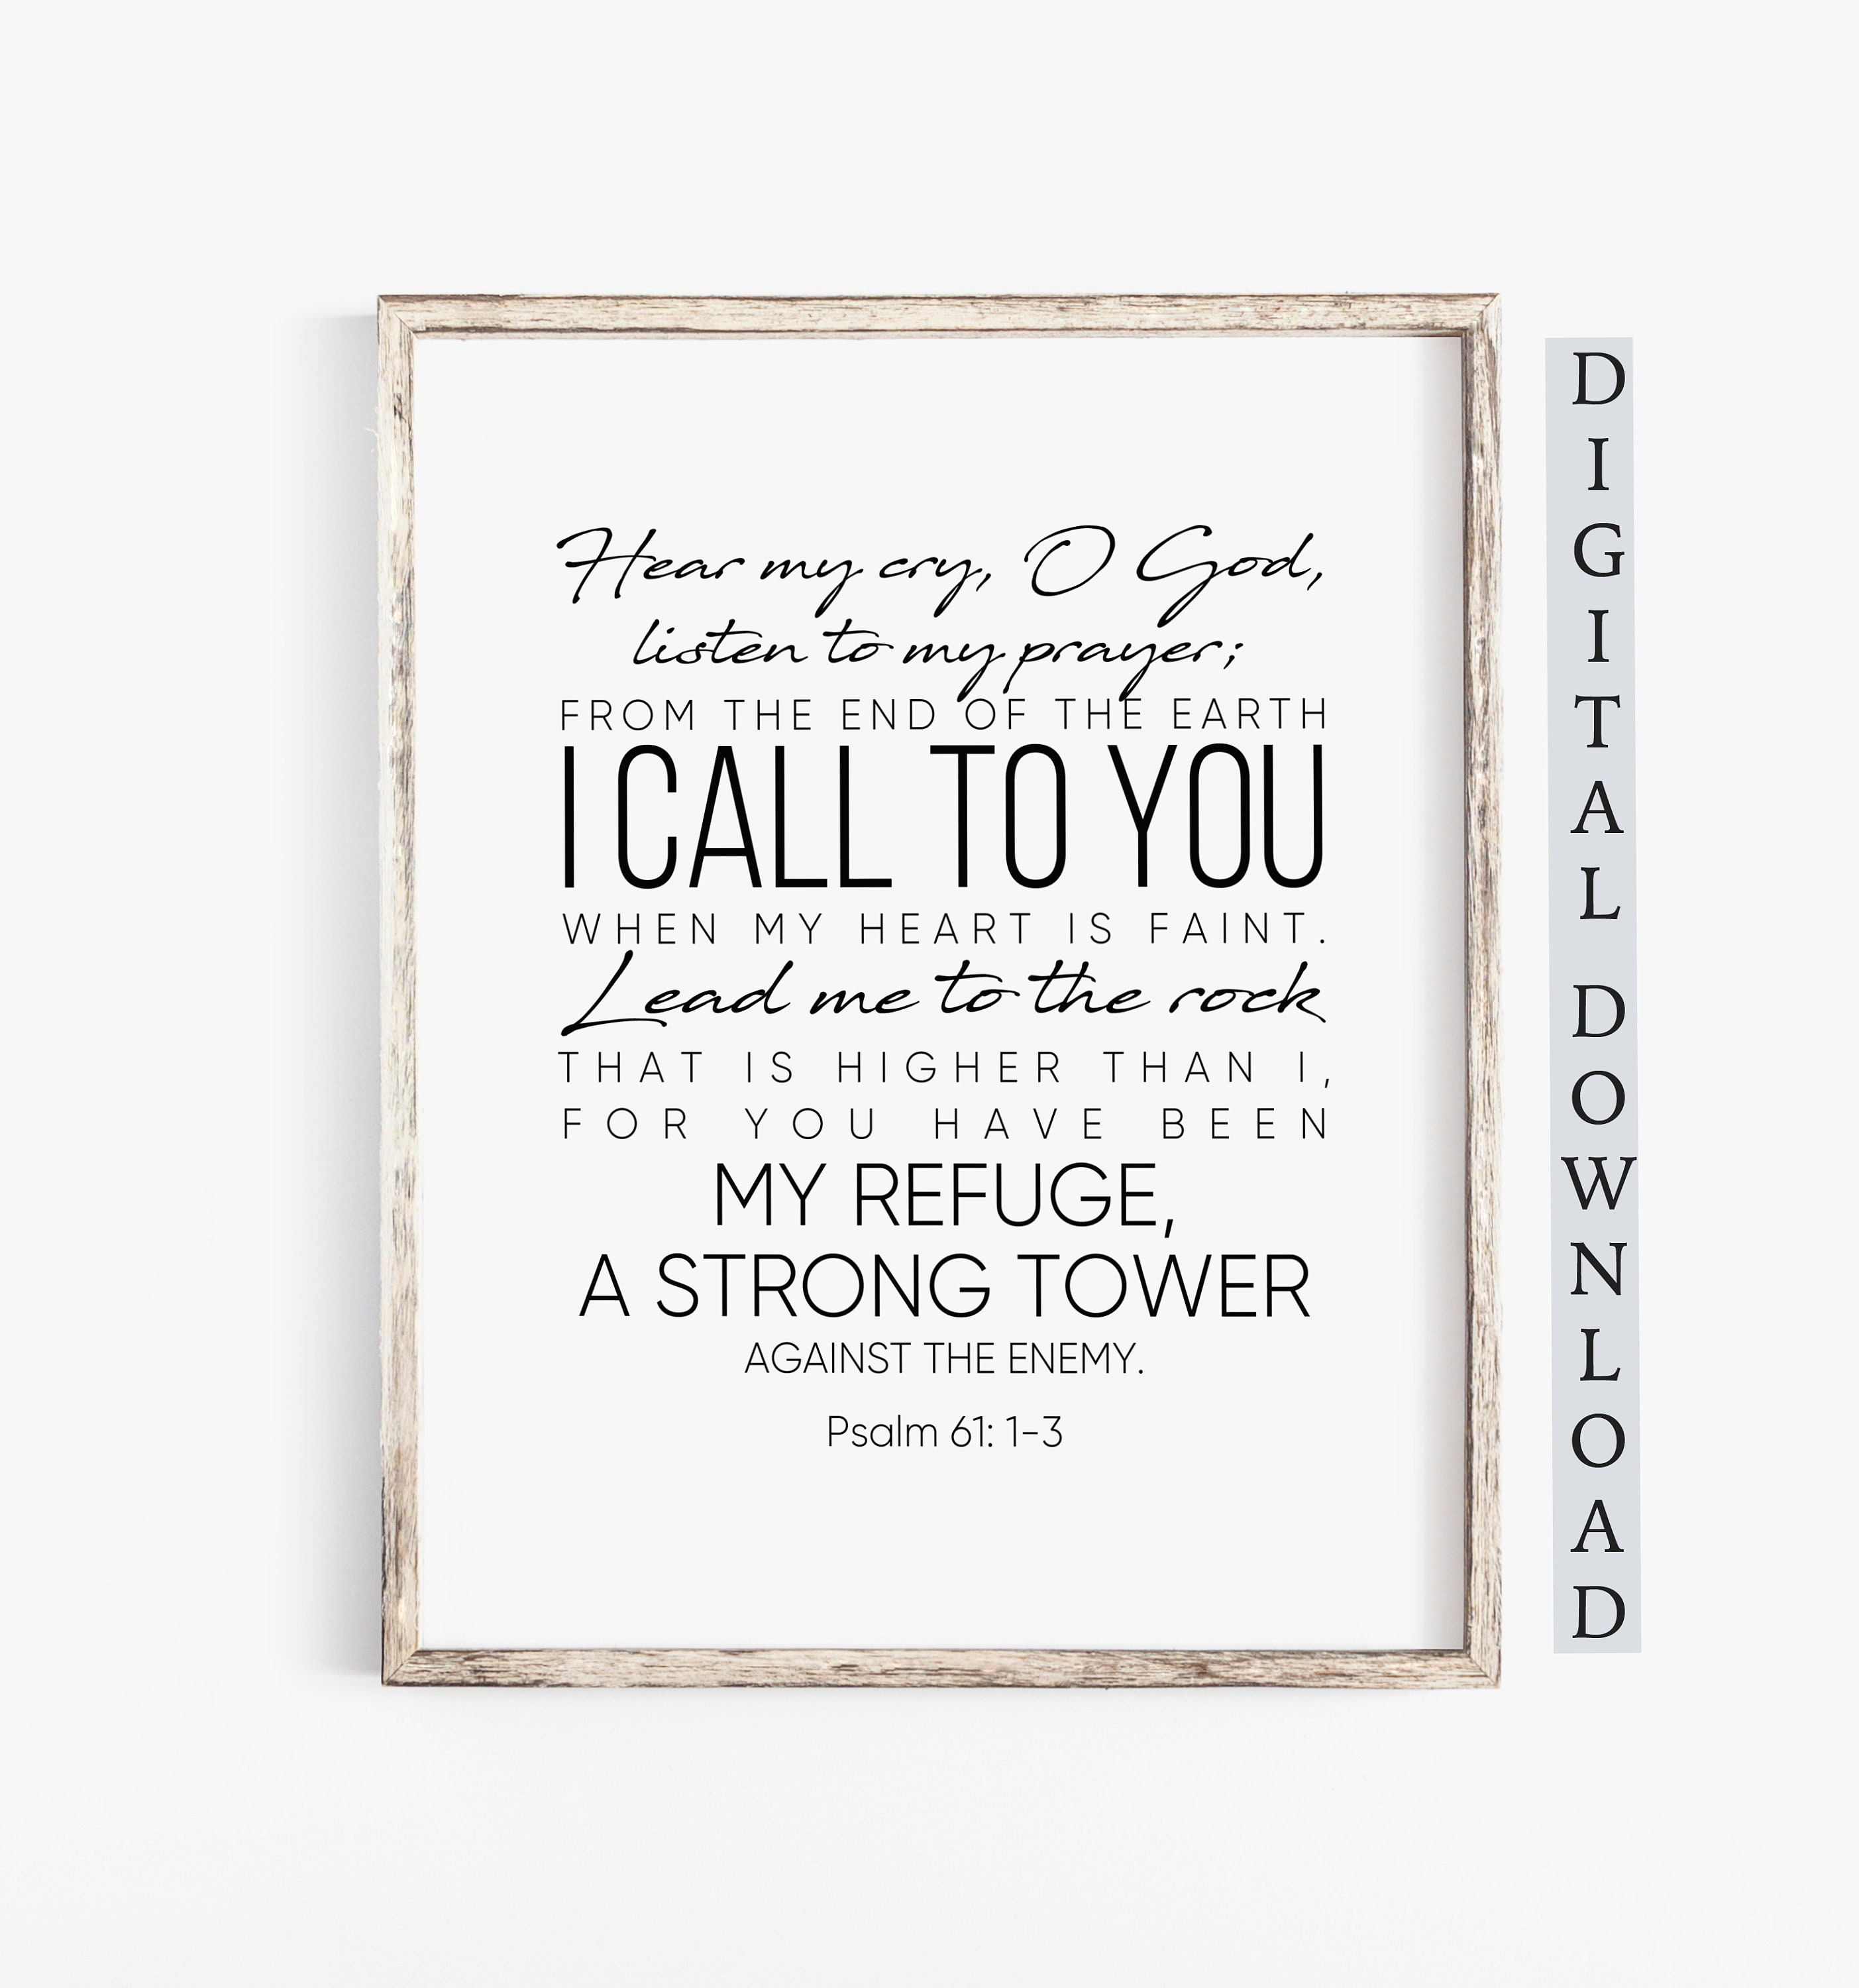 Hear my cry, O God,
listen to my prayer;
FROM THE END OF THE EARTH
I CALL TO YOU
WHEN MY HEART IS FAINT.
Lead me to the rock
THAT IS HIGHER THAN I,
FOR YOU HAVE BEEN
MY REFUGE,
A STRONG TOWER
AGAINST THE ENEMY.
Psalm 61: 1-3
DIGITAL DOWNLOAD